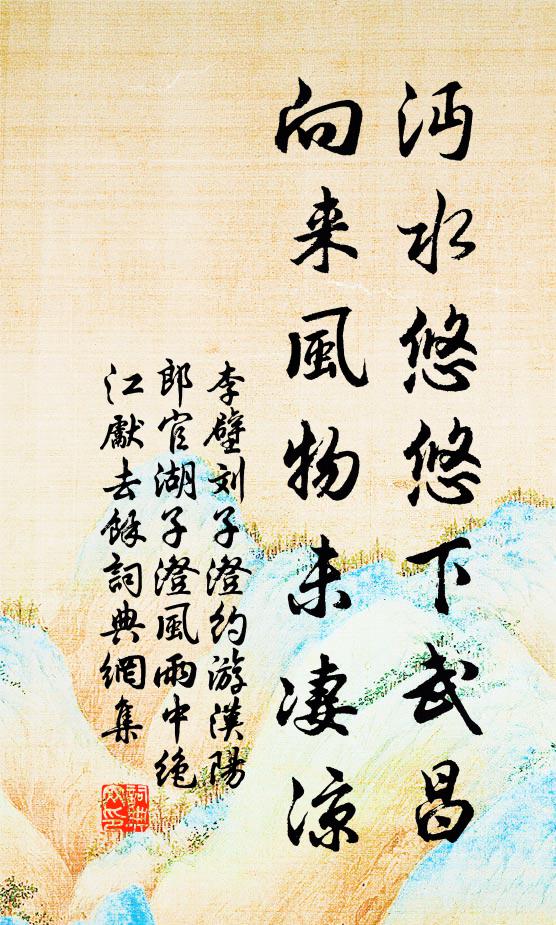 沔水悠悠下武昌
向来風物未凄涼
李壁刘子澄约游漢陽
郎官湖子澄風雨中绝
江獻去餘詞典網集